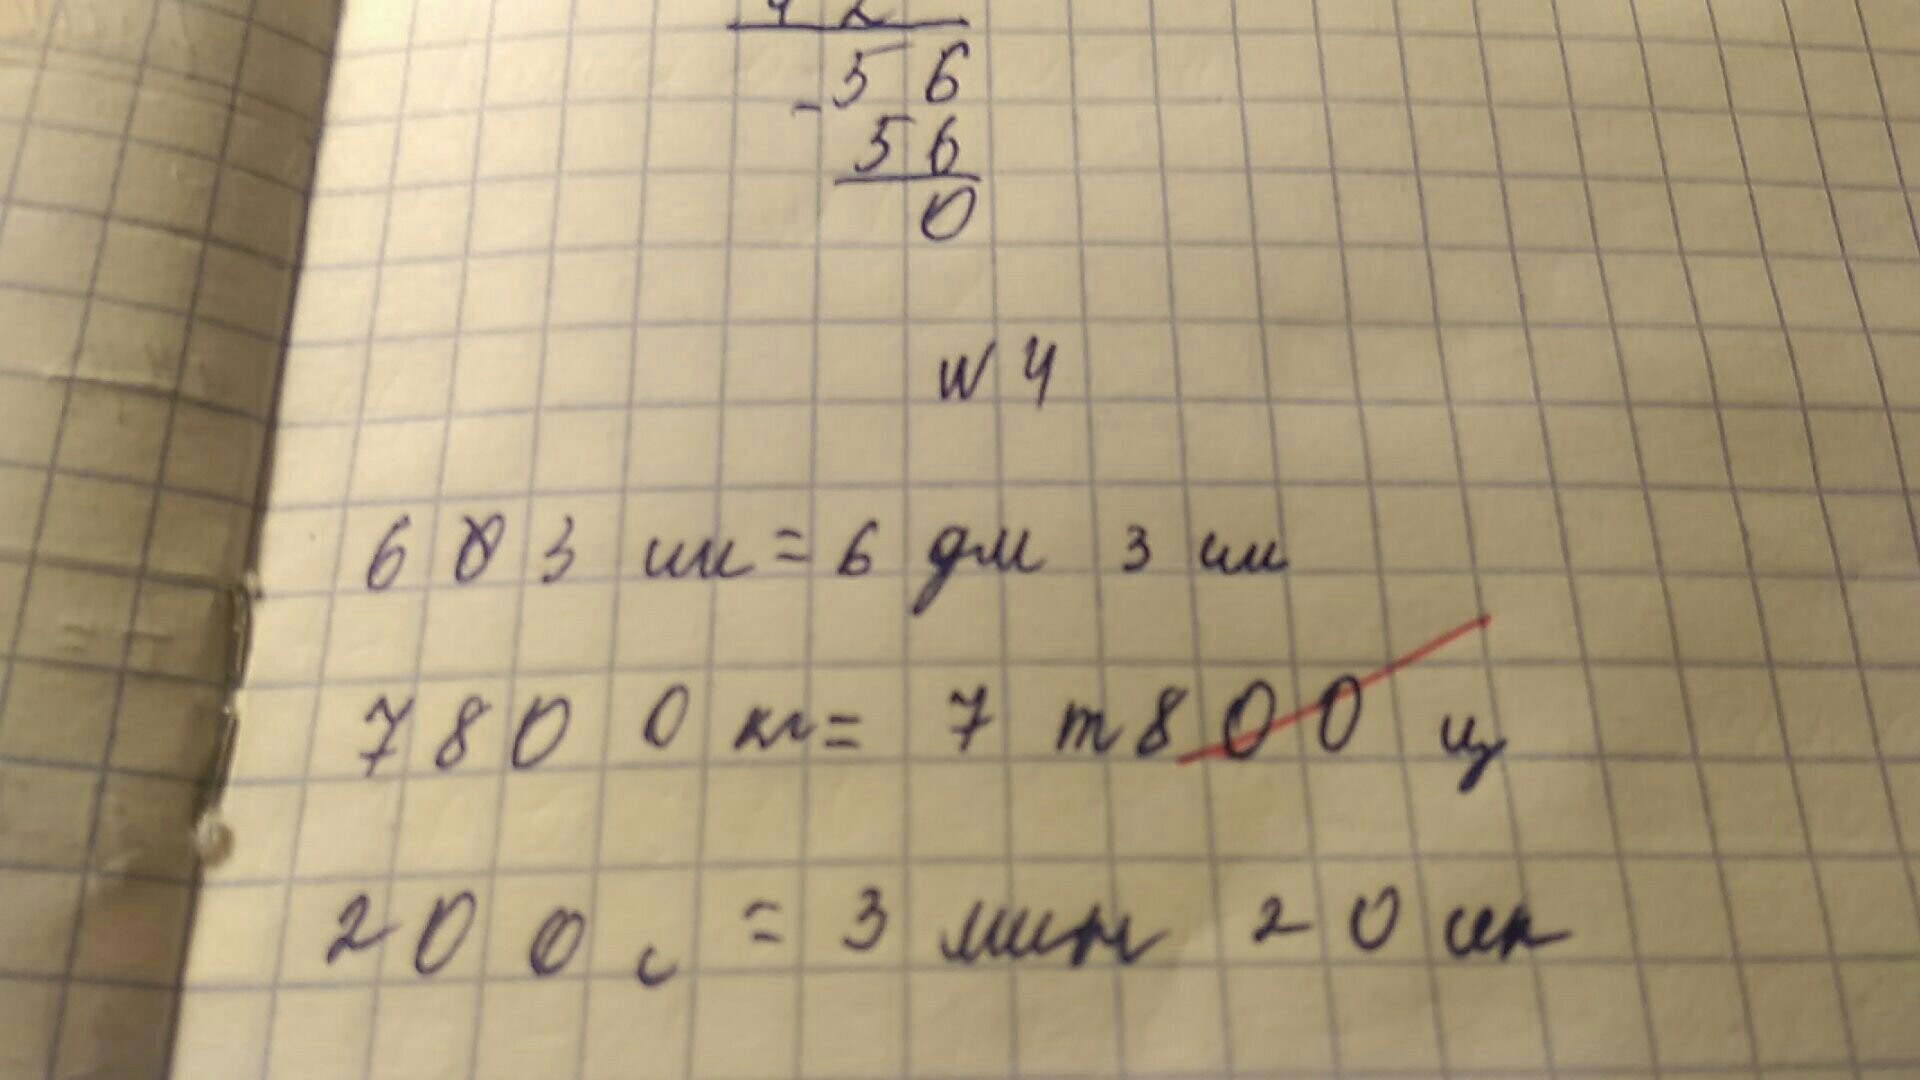 42
- 56
56
0
N 4
603 мм = 6 дм 3 мм
7800 кг = 7 т 800 ц
200 с = 3 мин 20 сек